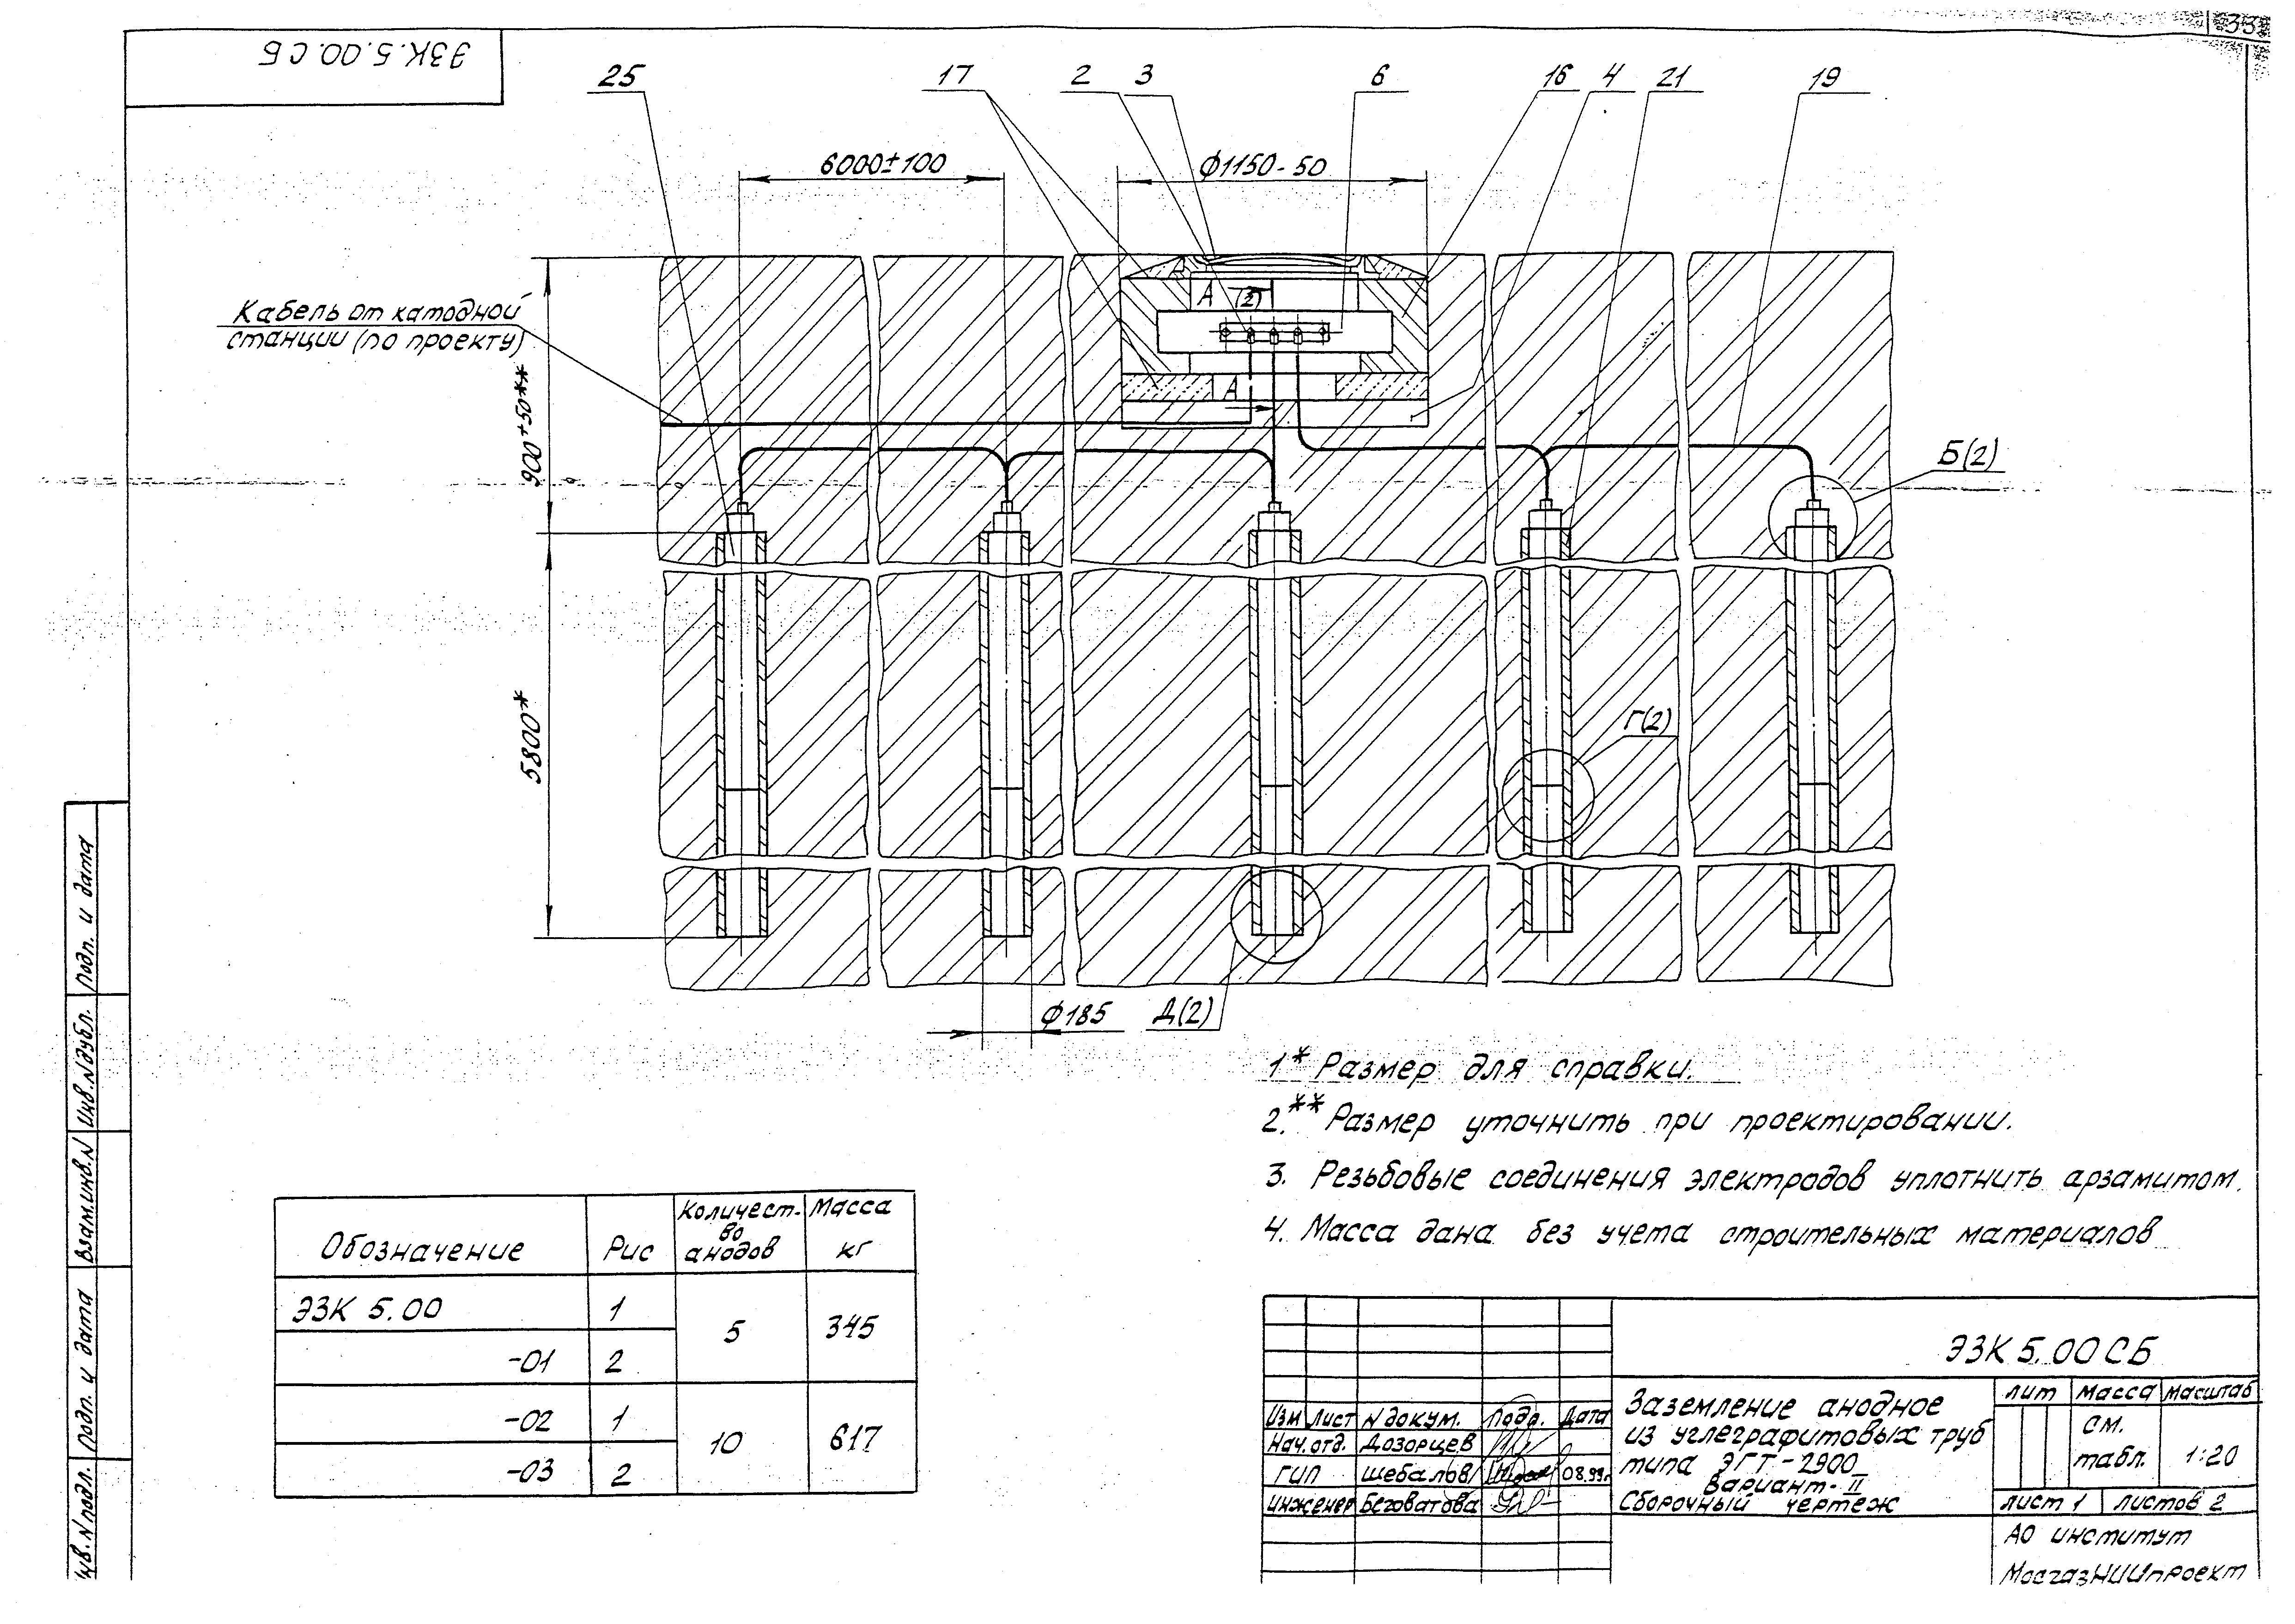 33
ЭЗК.5.00.СБ
25
17
2
3
6
16
4
21
19
6000±100
Ф1150-50
Кабель от катодной
станции (по проекту)
А
(2)
А
900+50**
Б(2)
5800*
Г(2)
Ф185
Д(2)
1* Размер для справки.
2.** Размер уточнить при проектировании.
3. Резьбовые соединения электродов уплотнить арзамитом.
4. Масса дана без учета строительных материалов
Обозначение Рис Количест-во анодов Масса кг
ЭЗК 5.00 1 5 345
-01 2
-02 1 10 617
-03 2
ЭЗК 5.00 СБ
Изм Лист N докум. Подп. Дата
Нач.отд. Дозорцев
ГИП Шебалов 08.99г
Инженер Беговатова
Заземление анодное
из углеграфитовых труб
типа ЭГТ-2900
Вариант-II
Сборочный чертеж
Лит Масса Масштаб
см.
табл. 1:20
Лист 1 Листов 2
АО институт
МосгазНИИпроект
Подп. и дата
Инв.N дубл.
Взам.инв.N
Подп. и дата
Инв.N подл.